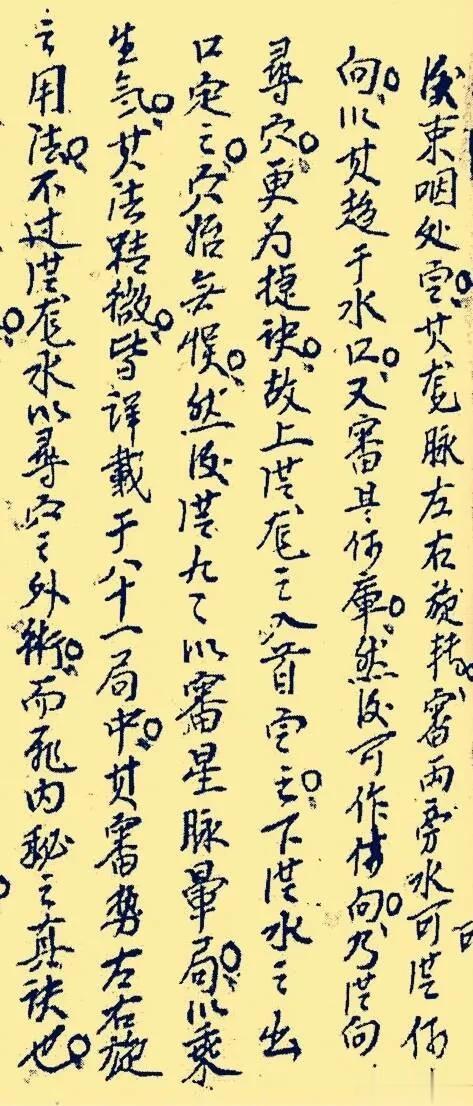 後束咽处定。其龙脉左右旋转。審两旁水可從何
向。以其趋于水口。又審是何庫。然後可作何向。乃從向
尋穴。更为捷訣。故上從龙之入首定之。下從水之出
口定之。穴始無悮。然後從九々以審星脉暈局。以乘
生氣。其法精微。皆詳載于八十一局中。其審勢左右旋
之用法。不过從龙水以尋穴之外術。而非内秘之真訣也。